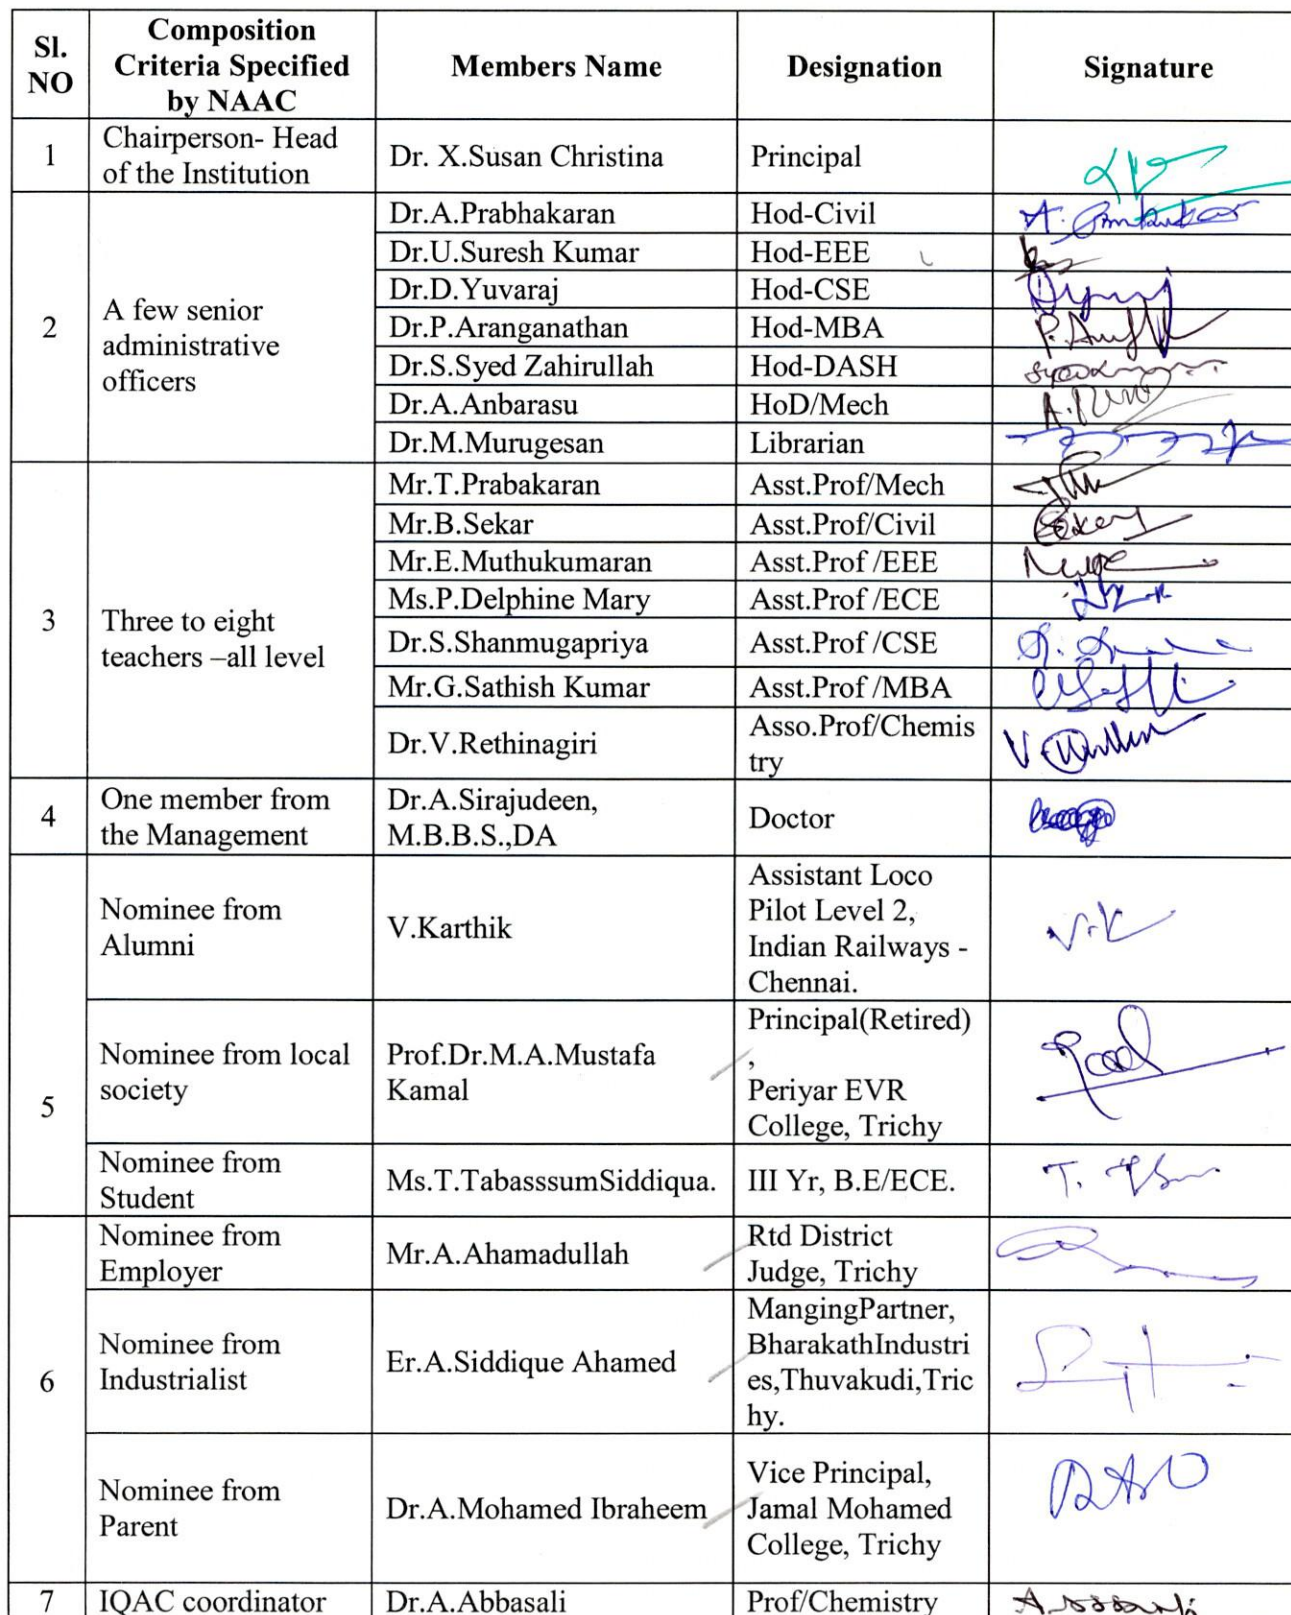 Sl. NO
Composition Criteria Specified by NAAC
Members Name
Designation
Signature
1
Chairperson- Head
of the Institution
Dr. X.Susan Christina
Principal
2
A few senior
administrative
officers
Dr.A.Prabhakaran
Hod-Civil
Dr.U.Suresh Kumar
Hod-EEE
Dr.D.Yuvaraj
Hod-CSE
Dr.P.Aranganathan
Hod-MBA
Dr.S.Syed Zahirullah
Hod-DASH
Dr.A.Anbarasu
HoD/Mech
Dr.M.Murugesan
Librarian
3
Three to eight
teachers –all level
Mr.T.Prabakaran
Asst.Prof/Mech
Mr.B.Sekar
Asst.Prof/Civil
Mr.E.Muthukumaran
Asst.Prof /EEE
Ms.P.Delphine Mary
Asst.Prof /ECE
Dr.S.Shanmugapriya
Asst.Prof /CSE
Mr.G.Sathish Kumar
Asst.Prof /MBA
Dr.V.Rethinagiri
Asso.Prof/Chemis
try
4
One member from
the Management
Dr.A.Sirajudeen,
M.B.B.S.,DA
Doctor
5
Nominee from
Alumni
V.Karthik
Assistant Loco
Pilot Level 2,
Indian Railways -
Chennai.
Nominee from local
society
Prof.Dr.M.A.Mustafa
Kamal
Principal(Retired)
,
Periyar EVR
College, Trichy
Nominee from
Student
Ms.T.TabasssumSiddiqua.
III Yr, B.E/ECE.
6
Nominee from
Employer
Mr.A.Ahamadullah
Rtd District
Judge, Trichy
Nominee from
Industrialist
Er.A.Siddique Ahamed
MangingPartner,
BharakathIndustri
es,Thuvakudi,Tric
hy.
Nominee from
Parent
Dr.A.Mohamed Ibraheem
Vice Principal,
Jamal Mohamed
College, Trichy
7
IQAC coordinator
Dr.A.Abbasali
Prof/Chemistry